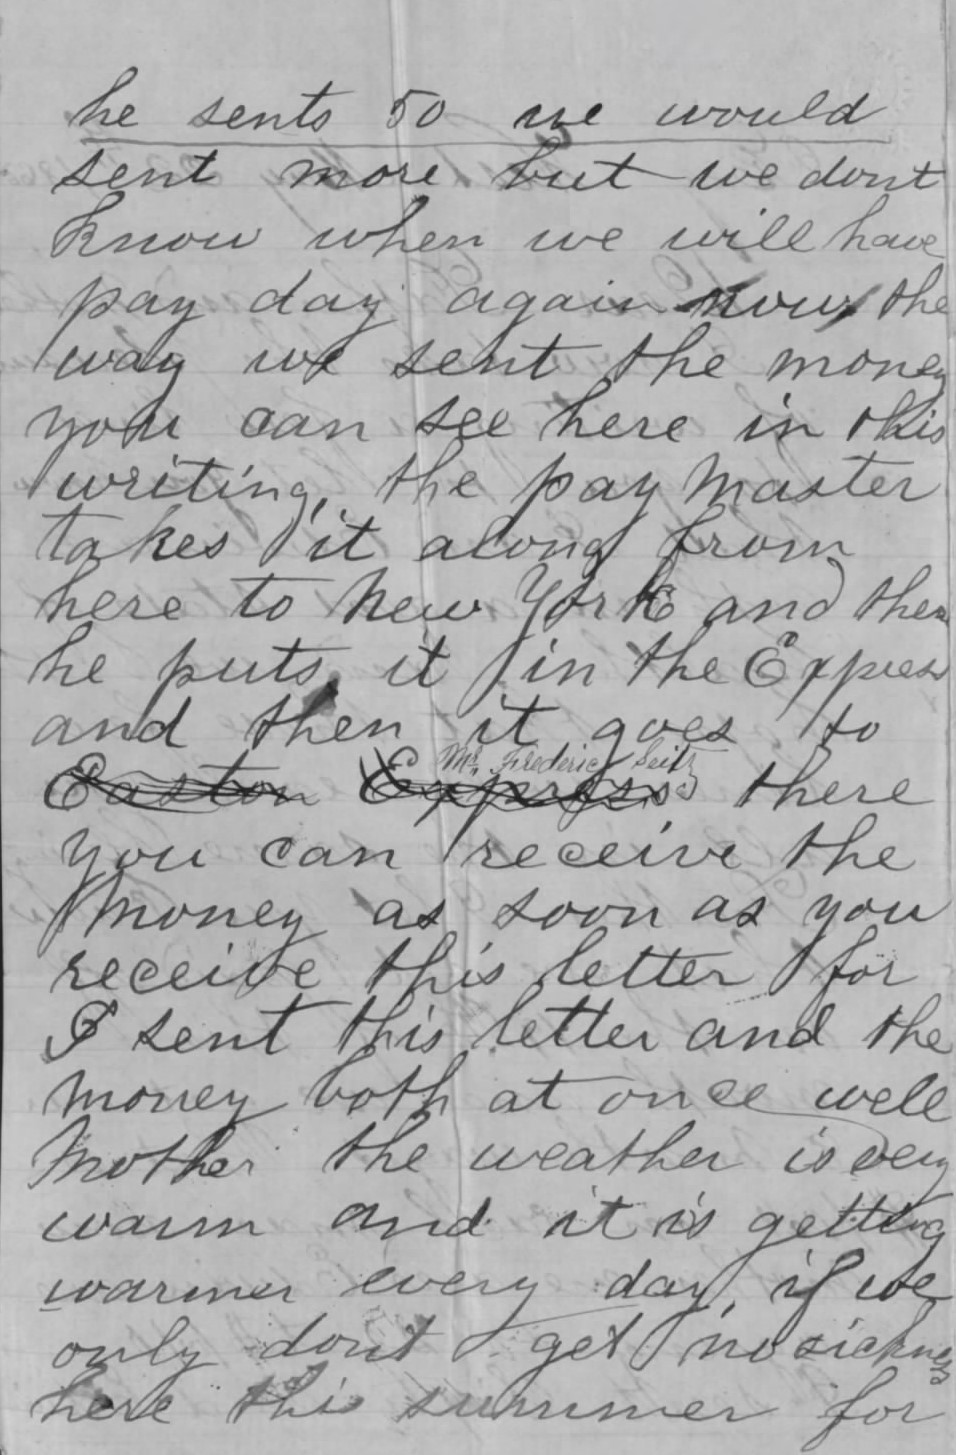 he sents 50 we would
sent more but we dont
know when we will have
pay day again now the
way we sent the money
you can see here in this
writing, the pay Master
takes it along from
here to New York and then
he puts it in the Express
and then it goes to
Mr. Frederic Seitz
Easton Express there
you can receive the
Money as soon as you
receive this letter for
I sent this letter and the
Money both at once well
Mother the weather is very
warm and it is getting
warmer every day, if we
only dont get no sickness
here this summer for